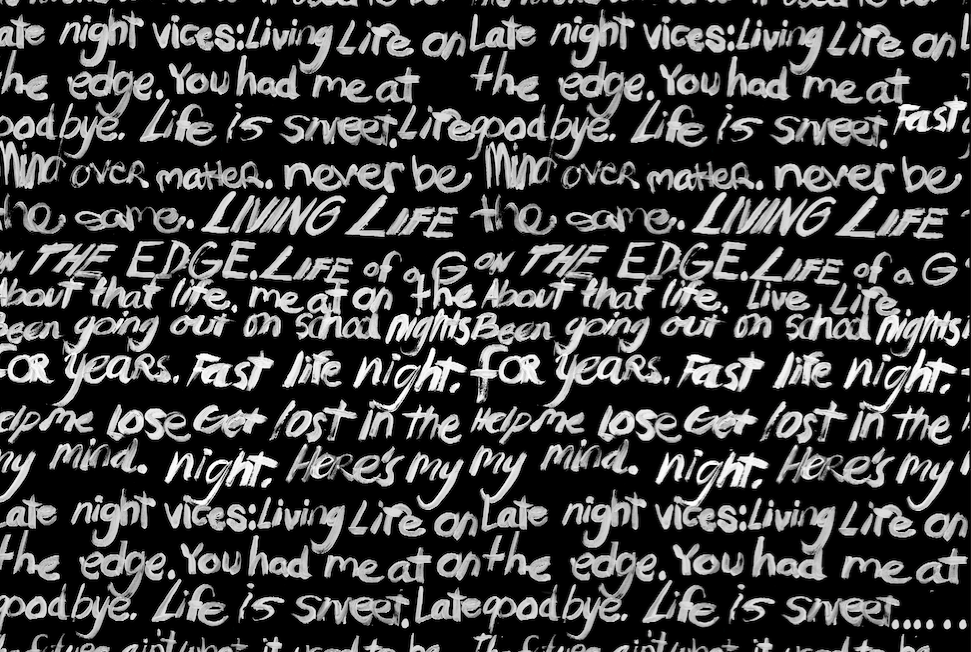 Late night vices:Living Life on Late night vices:Living Life on
the edge. You had me at the edge. You had me at
goodbye. Life is sweet. Life goodbye. Life is sweet. Fast
Mind over matter. never be Mind over matter. never be
the same.. LIVING LIFE the same.. LIVING LIFE
ON THE EDGE. LIFE of a G ON THE EDGE. LIFE of a G
About that life. me at on the About that life. Live Life
Been going out on school nights. Been going out on school nights.
FOR years. Fast life night. FOR years. Fast life night.
Help me Lose Get lost in the Help me Lose Get lost in the
my mind. night. Here's my my mind. night. Here's my
Late night vices:Living Life on Late night vices:Living Life on
the edge. You had me at on the edge. You had me at
goodbye. Life is sweet. Late goodbye. Life is sweet......
The future ain't what it used to be The future ain't what it used to be